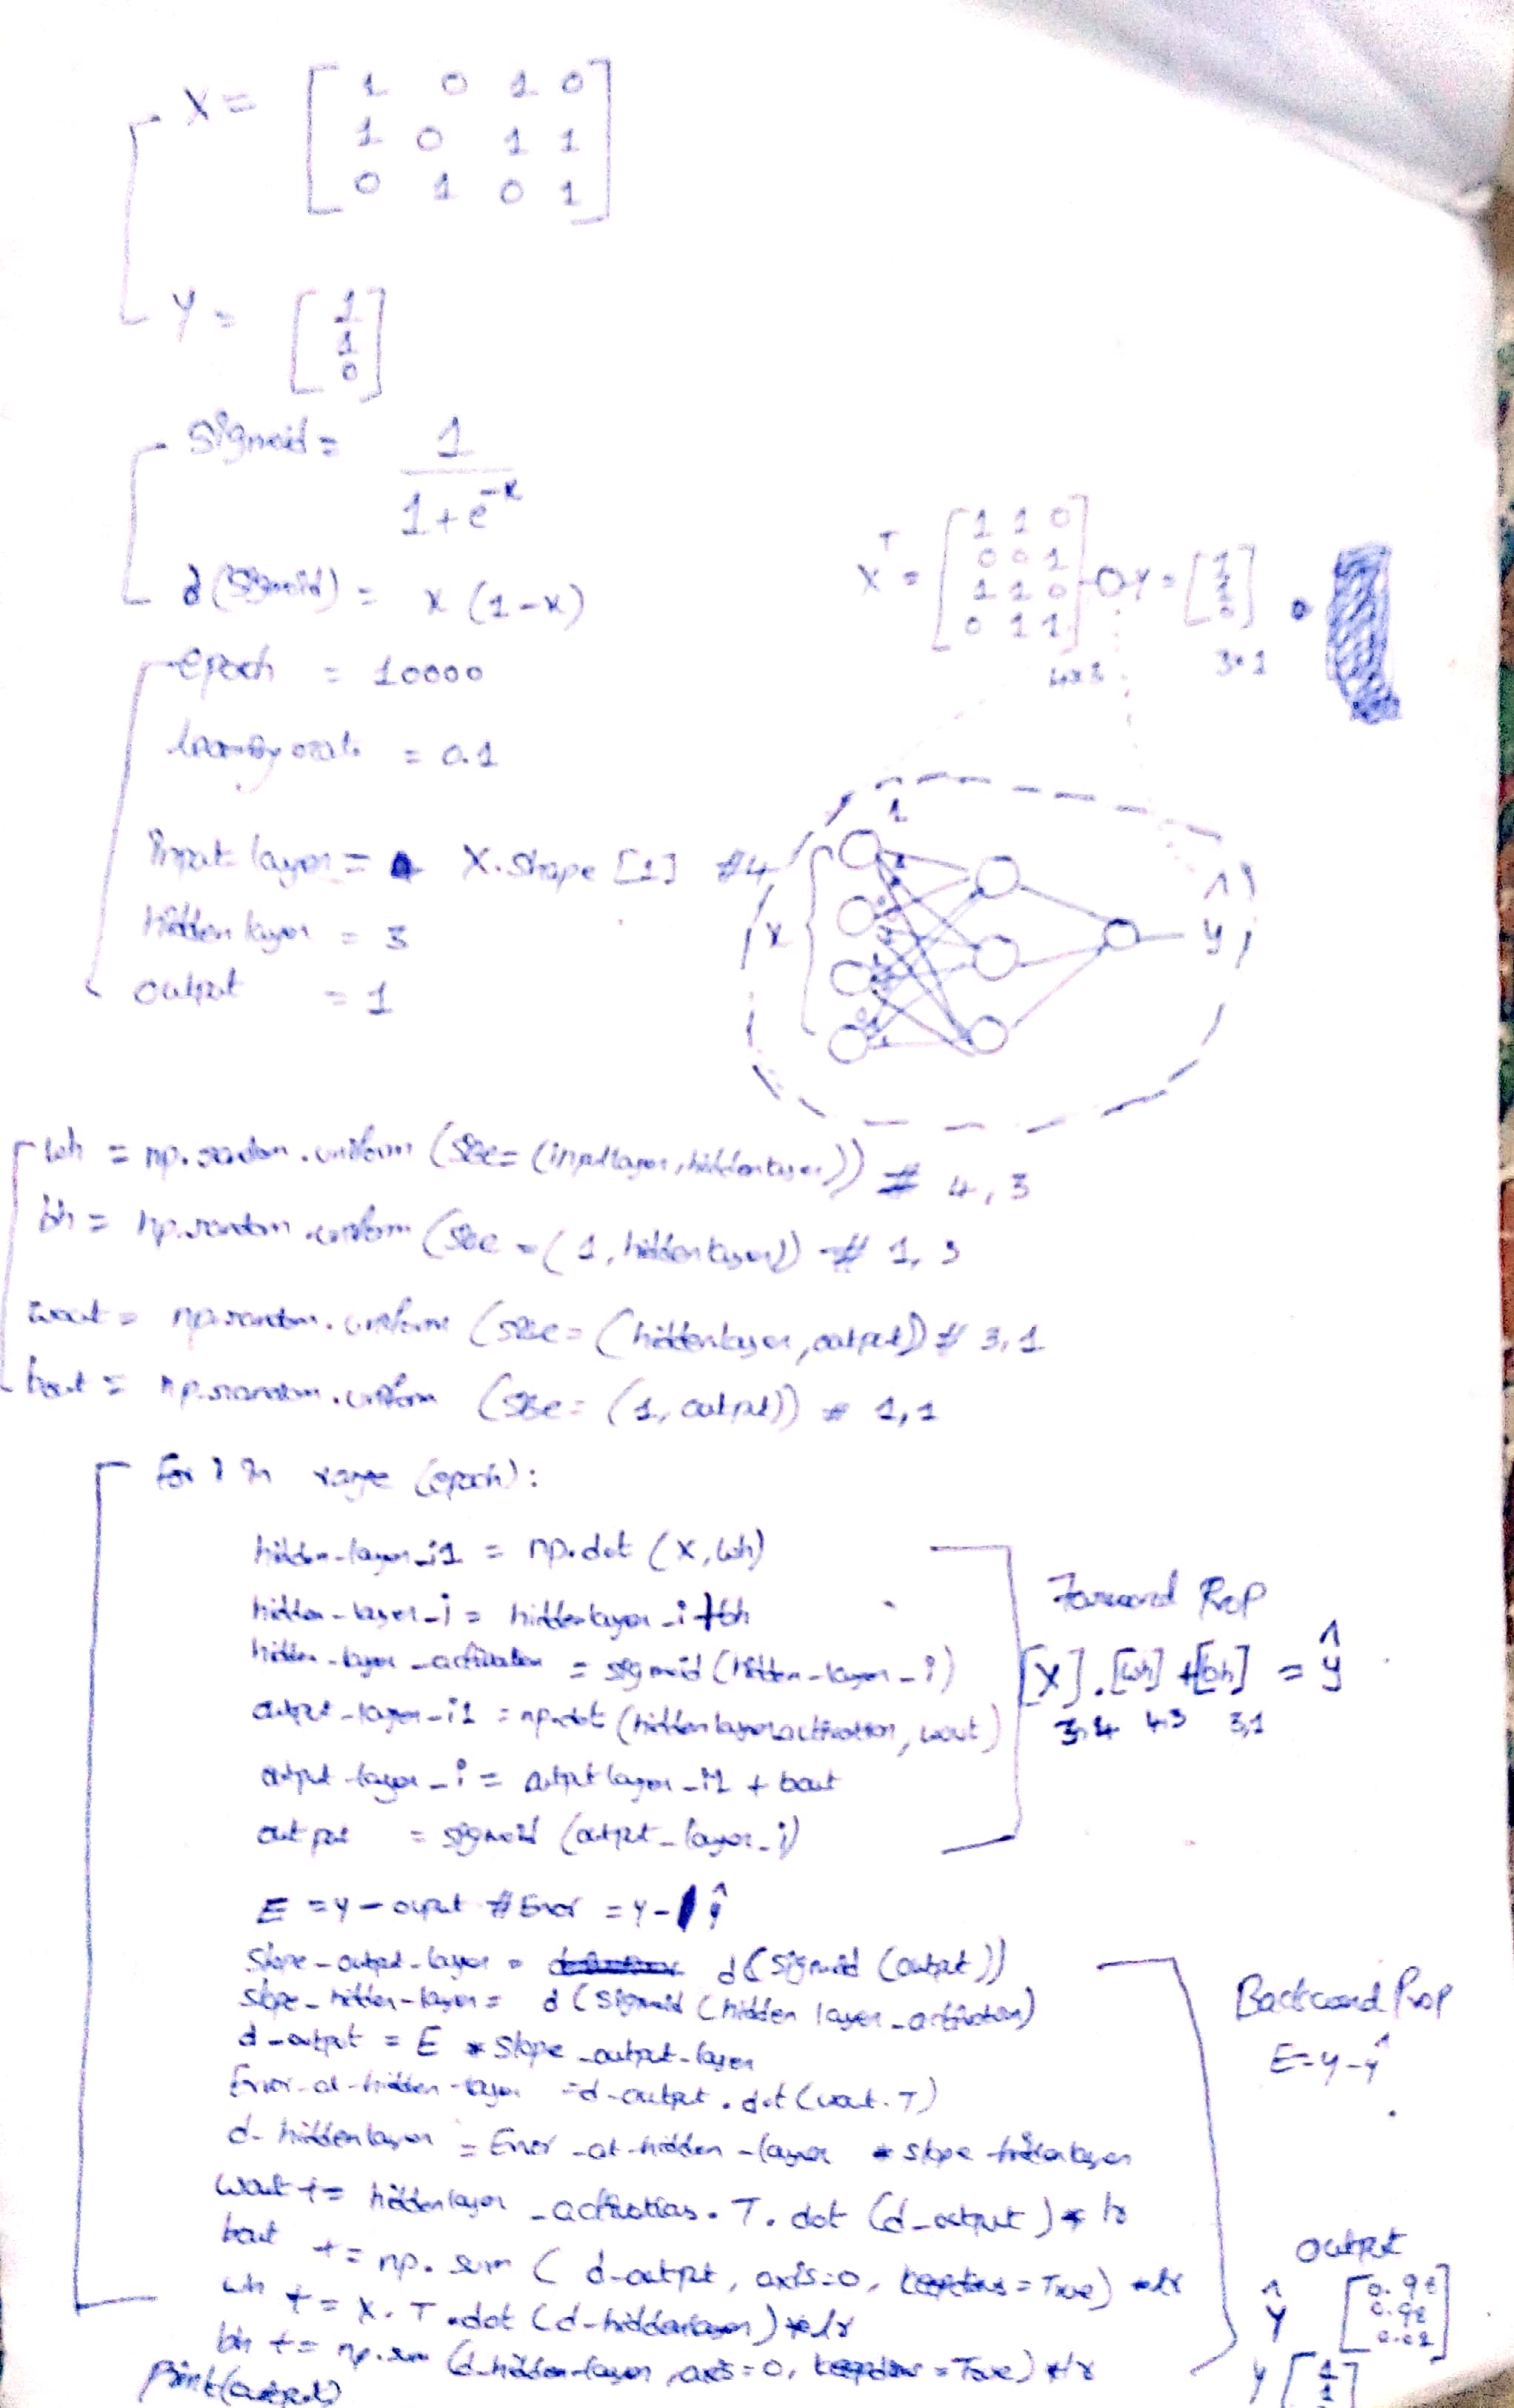 X = [ 1 0 1 0
1 0 1 1
0 1 0 1 ]
Y = [ 1
1
0 ]
Sigmoid = 1 / 1 + e^-x
d (Sigmoid) = x (1-x)
X^T = [ 1 1 0
0 0 1
1 1 0
0 1 1 ]
4x3
Y = [ 1
1
0 ]
3*1
epoch = 10000
learning rate = 0.1
input layer = X.shape [1] #4
hidden layer = 3
output = 1
1
X
ŷ
wh = np.random.uniform (size = (inputlayer, hiddenlayer)) # 4, 3
bh = np.random.uniform (size = (1, hiddenlayer)) # 1, 3
wout = np.random.uniform (size = (hiddenlayer, output)) # 3, 1
bout = np.random.uniform (size = (1, output)) # 1, 1
for i in range (epoch):
hidden-layer_i1 = np.dot (X, wh)
hidden-layer_i = hiddenlayer_i + bh
hidden-layer_activation = sigmoid (hidden-layer_i)
output-layer-i1 = np.dot (hiddenlayeractivation, wout)
output-layer_i = outputlayer_i1 + bout
output = sigmoid (output_layer_i)
Forward Prop
[X].[wh] + [bh] = ŷ
3,4 4,3 3,1
E = y - ouput # Error = y - ŷ
slope-output-layer = d (sigmoid (output))
slope-hidden-layer = d (sigmoid (hidden layer_activation)
d-output = E * slope_output-layer
Error-at-hidden-layer = d-output.dot (wout.T)
d-hiddenlayer = Error-at-hidden-layer * slope hiddenlayer
wout += hiddenlayer_activations.T.dot (d_output) * lr
bout += np.sum (d-output, axis=0, keepdims = True) * lr
wh += X.T.dot (d-hiddenlayer) * lr
bh += np.sum (d-hidden-layer, axis=0, keepdims = True) * lr
print (output)
Backward Prop
E = y - ŷ
output
Ŷ [ 0.98
0.98
0.02 ]
Y [ 1
1